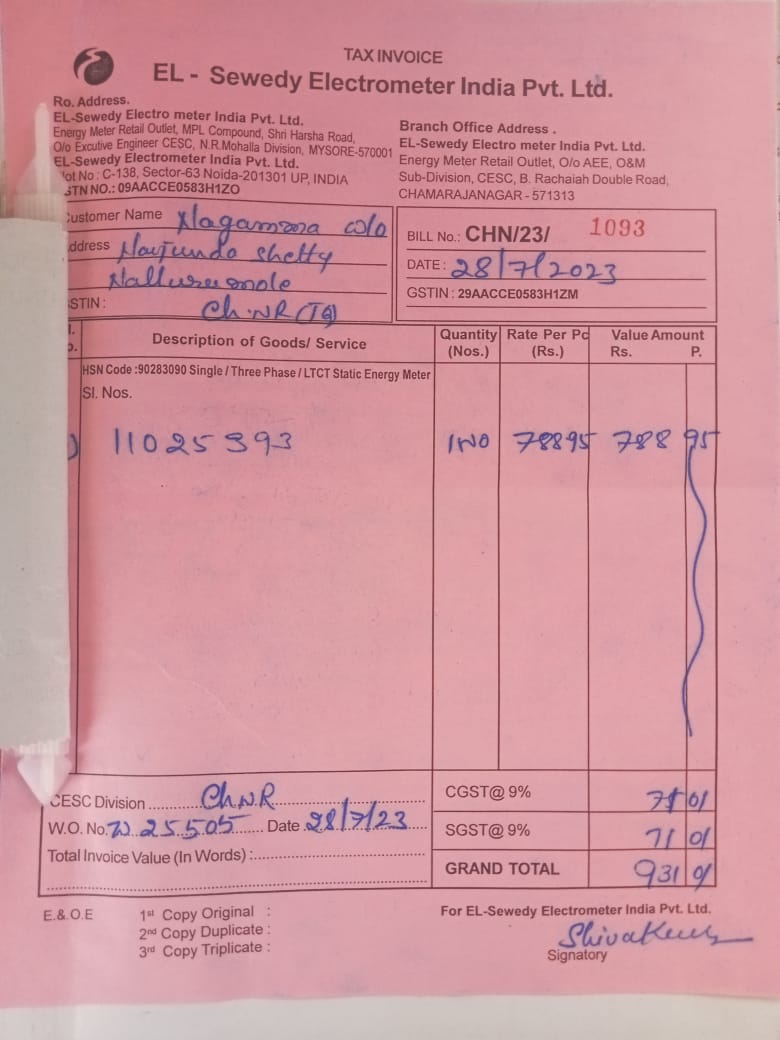 TAX INVOICE
EL - Sewedy Electrometer India Pvt. Ltd.
Ro. Address.
EL-Sewedy Electro meter India Pvt. Ltd.
Energy Meter Retail Outlet, MPL Compound, Shri Harsha Road,
O/o Excutive Engineer CESC, N.R.Mohalla Division, MYSORE-570001
EL-Sewedy Electrometer India Pvt. Ltd.
lot No : C-138, Sector-63 Noida-201301 UP, INDIA
STN NO.: 09AACCE0583H1ZO
Branch Office Address .
EL-Sewedy Electro meter India Pvt. Ltd.
Energy Meter Retail Outlet, O/o AEE, O&M
Sub-Division, CESC, B. Rachaiah Double Road,
CHAMARAJANAGAR - 571313
ustomer Name Nagamma w/o
ddress shetty
STIN : Ch.NR (TQ)
BILL No.: CHN/23/ 1093
DATE : 28/7/2023
GSTIN : 29AACCE0583H1ZM
Description of Goods/ Service Quantity (Nos.) Rate Per Pc (Rs.) Value Amount Rs. P.
HSN Code :90283090 Single / Three Phase / LTCT Static Energy Meter
Sl. Nos.
) 11025393 1NO 78895 788 95
CESC Division Ch.N.R CGST@ 9% 71 01
W.O. No. 25505 Date 28/7/23 SGST@ 9% 71 01
Total Invoice Value (In Words) : GRAND TOTAL 931 01
E.& O.E 1st Copy Original :
2nd Copy Duplicate :
3rd Copy Triplicate :
For EL-Sewedy Electrometer India Pvt. Ltd.
Signatory